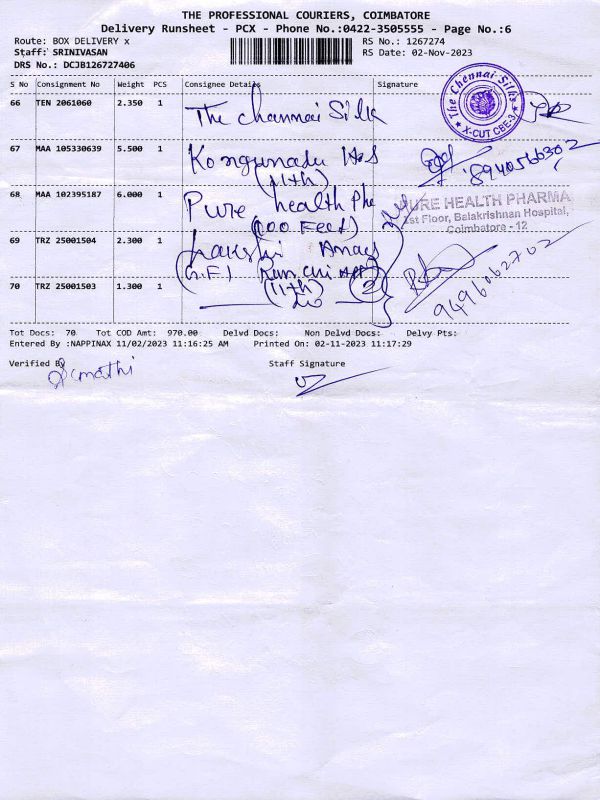 THE PROFESSIONAL COURIERS, COIMBATORE
Delivery Runsheet - PCX - Phone No.:0422-3505555 - Page No.:6
Route: BOX DELIVERY x RS No.: 1267274
Staff: SRINIVASAN RS Date: 02-Nov-2023
DRS No.: DCJB126727406
S No Consignment No Weight PCS Consignee Details Signature
66 TEN 2061060 2.350 1 The channai Silk
The Chennai Silks
★ X-CUT CBE-3 ★
67 MAA 105330639 5.500 1 Kongunadu Hos
(11th) 8940560302
68 MAA 102395187 6.000 1 Pure health Pha
(100 Feet)
PURE HEALTH PHARMA
1st Floor, Balakrishnan Hospital,
Coimbatore - 12
69 TRZ 25001504 2.300 1
(G.F)
70 TRZ 25001503 1.300 1 (11th) 2
9496062702
Tot Docs: 70 Tot COD Amt: 970.00 Delvd Docs: Non Delvd Docs: Delvy Pts:
Entered By :NAPPINAX 11/02/2023 11:16:25 AM Printed On: 02-11-2023 11:17:29
Verified By Staff Signature